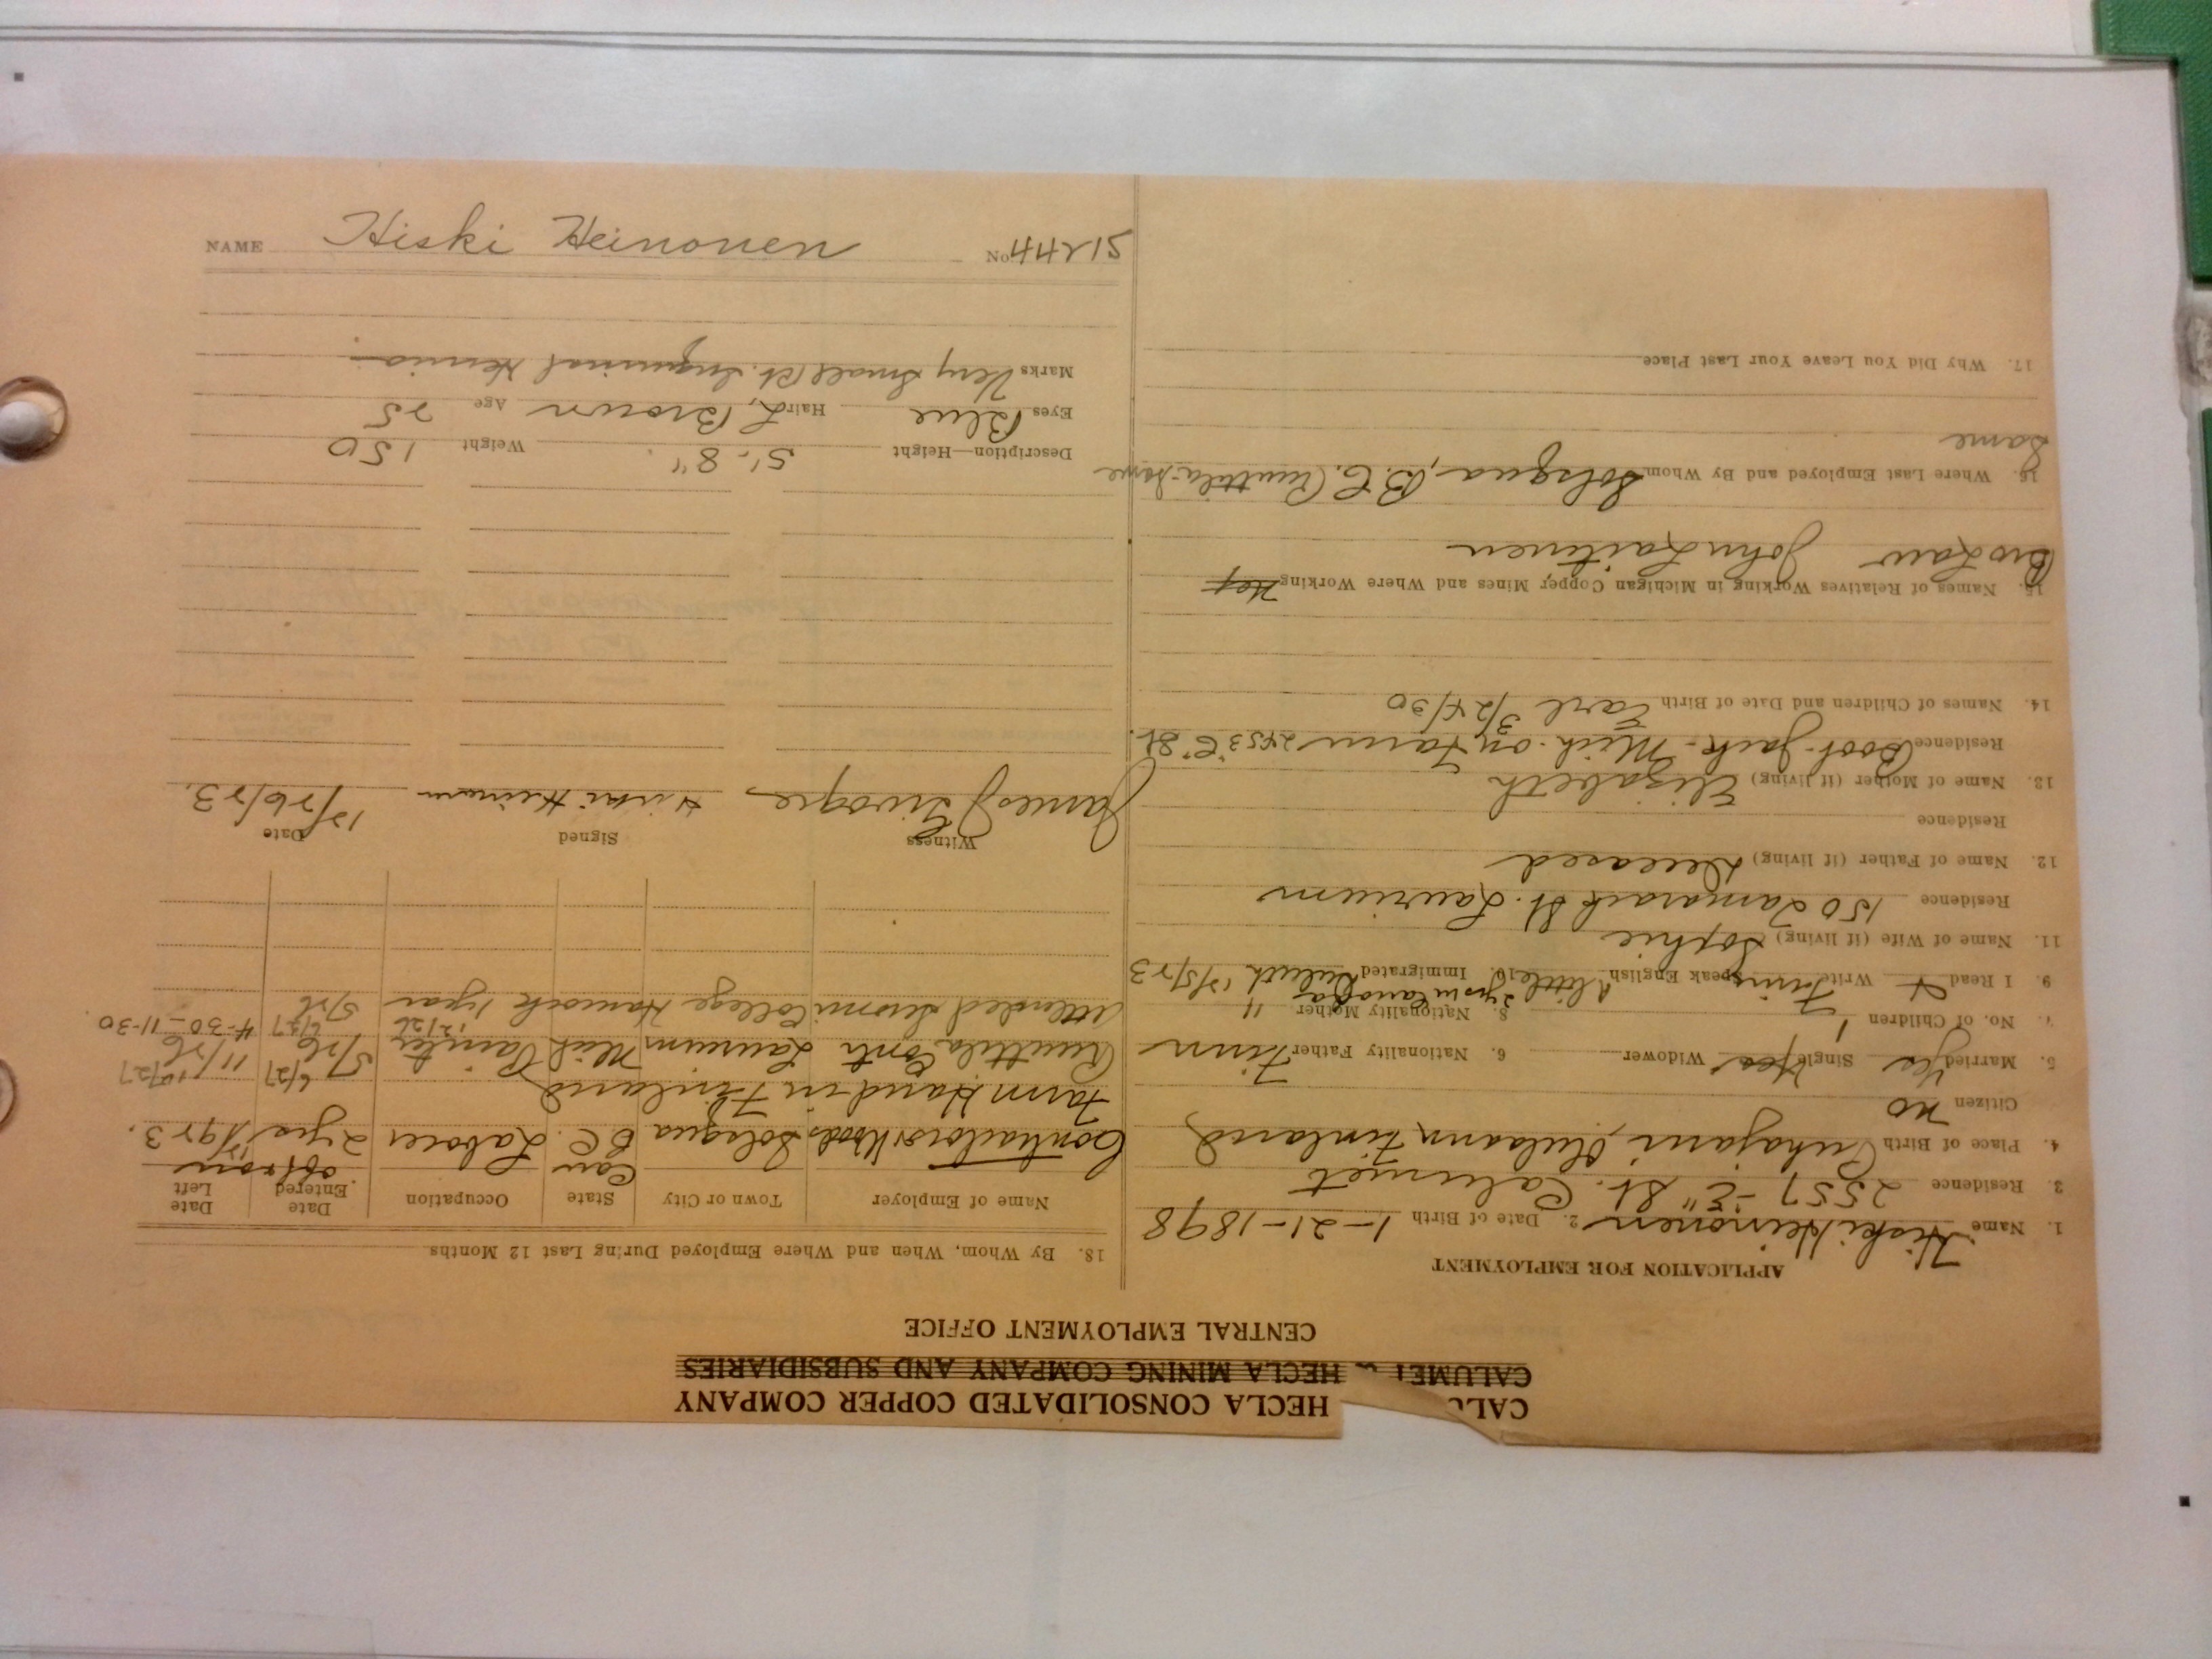 CALU HECLA CONSOLIDATED COPPER COMPANY
CALUMET & HECLA MINING COMPANY AND SUBSIDIARIES
CENTRAL EMPLOYMENT OFFICE
APPLICATION FOR EMPLOYMENT
1. Name Hiski Heinonen 2. Date of Birth 1-21-1898
3. Residence 2557-"E" St. Calumet
4. Place of Birth Finland
Citizen no
5. Married Yes Single Yes Widower 6. Nationality Father Finn
7. No. of Children 1 8. Nationality Mother "
9. I Read & Write Finn Speak English A little 10. Immigrated Duluth 12/5/23
2 yrs in Canada
11. Name of Wife (if living) Sophie
Residence 150 Tamarack St. Laurium
12. Name of Father (if living) Deceased
Residence
13. Name of Mother (if living) Elizabeth
Residence Boot-Jack-Mich. on Farm 2453 "C" St.
14. Names of Children and Date of Birth Earl 3/24/30
15. Names of Relatives Working in Michigan Copper Mines and Where Working
Bro Law John Laitinen
16. Where Last Employed and By Whom Solsqua, B.C. Ruuttila-same
Same
17. Why Did You Leave Your Last Place
18. By Whom, When and Where Employed During Last 12 Months
Name of Employer Town or City State Occupation Date Entered Date Left
Contractor Woods Solsqua Can B.C. Laborer off & on 2 yrs 1923.
Farm Hand in Finland
Ruuttila Contr Laurium Mich Painter 5/26 11/26
12/26 6/27 10/27
6/27 4-30-11-30
Attended Suomi College Hancock 1 year 5/26
Witness Signed Date
James J Hiski Heinonen 12/26/23.
Description—Height 5'-8" Weight 150
Eyes Blue Hair L. Brown Age 25
Marks Very Small Rt. Inguinal Hernia
NAME Hiski Heinonen No. 51244